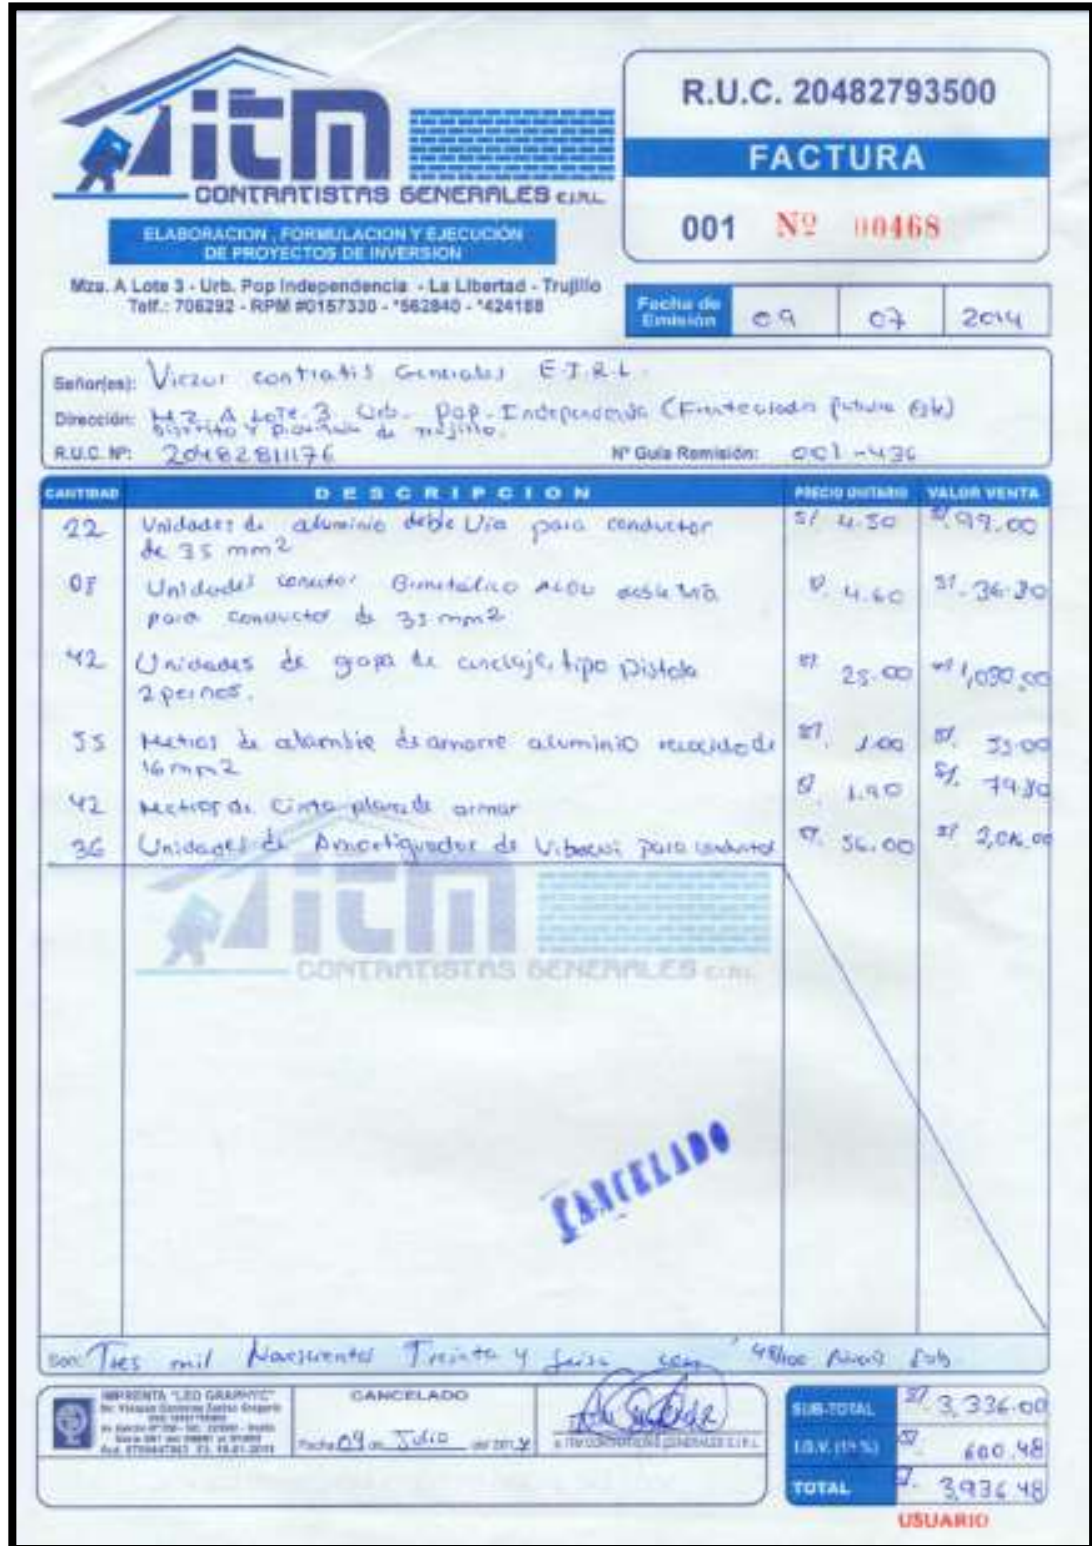 itm
CONTRATISTAS GENERALES E.I.R.L.
ELABORACION , FORMULACION Y EJECUCIÓN
DE PROYECTOS DE INVERSION
Mza. A Lote 3 - Urb. Pop Independencia - La Libertad - Trujillo
Telf.: 706292 - RPM #0157330 - *562840 - *424188
R.U.C. 20482793500
FACTURA
001 Nº 00468
Fecha de Emisión 09 07 2014
Señor(es): contratis Generales E.I.R.L.
Dirección: MZ. A LOTE. 3 Urb. Pop. Independencia
Distrito y Provincia de Trujillo.
R.U.C. Nº: 20482811176 Nº Guia Remisión: 001-436
CANTIDAD DESCRIPCION PRECIO UNITARIO VALOR VENTA
22 Unidades de aluminio doble Via para conductor S/ 4.50 S/. 99.00
de 35 mm2
08 Unidades conector Bimetálico doble Via S/. 4.60 S/. 36.80
para conductor de 35 mm2
42 Unidades de grapa de anclaje, tipo Pistola S/. 25.00 S/. 1,050.00
2 pernos.
55 Metros de alambre de amarre aluminio recocido de S/. 1.00 S/. 55.00
16 mm2
42 Metros de Cinta plana de armar S/. 1.90 S/. 79.80
36 Unidades de Amortiguador de para conductor S/. 56.00 S/. 2,016.00
itm
CONTRATISTAS GENERALES E.I.R.L.
CANCELADO
Son: Tres mil Novecientos Treinta y Seis con 48/100
IMPRENTA "LEO GRAPHYC"
CANCELADO
Fecha 09 de Julio del 201
SUB-TOTAL S/. 3,336.00
I.G.V. S/. 600.48
TOTAL S/. 3,936.48
USUARIO